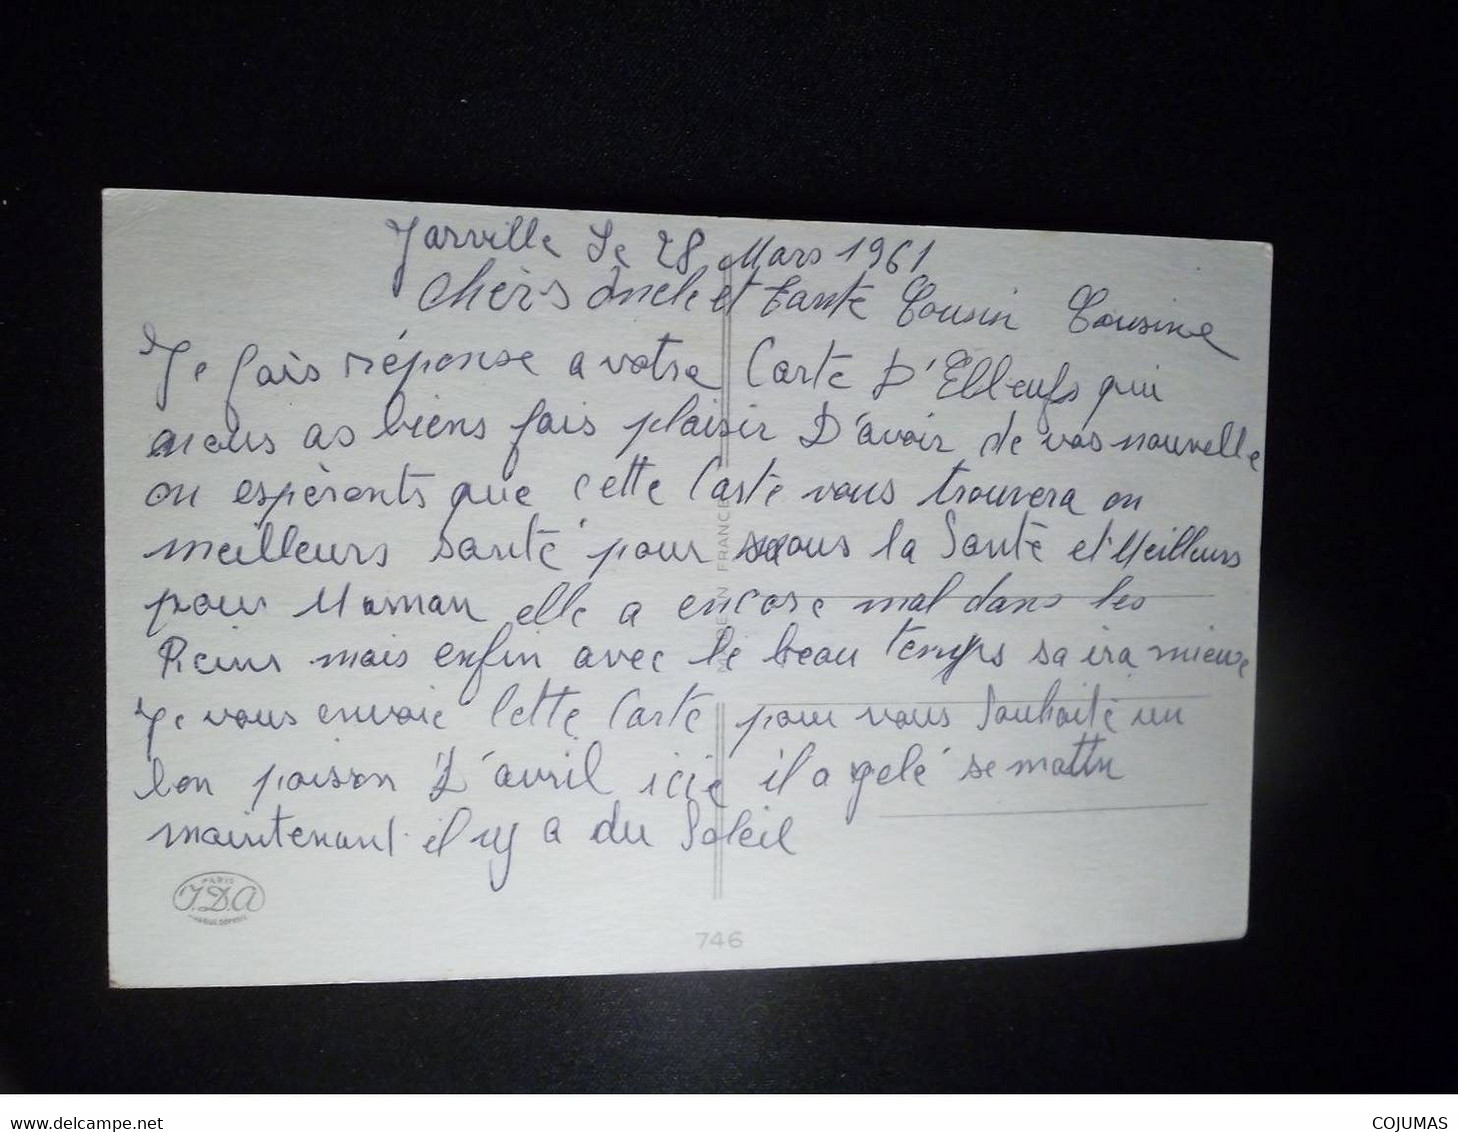 Jarville Le 28 Mars 1961
Chèrs Oncle et Tante Cousin Cousine
Je fais réponse a votre Carte D'Elbeufs qui
nous as biens fais plaisir D'avoir de vos nouvelle
on espèrents que cette Carte vous trouvera on
meilleurs Santé pour nous la Santé et Meilleurs
pour Maman elle a encore mal dans les
Reins mais enfin avec le beau temps sa ira mieux
Je vous envoie Cette Carte pour vous Souhaité un
bon poison D'avril icie il a gelé se mattin
maintenant il y a du Soleil
MADE IN FRANCE
PARIS
J.D.A
746
www.delcampe.net
COJUMAS